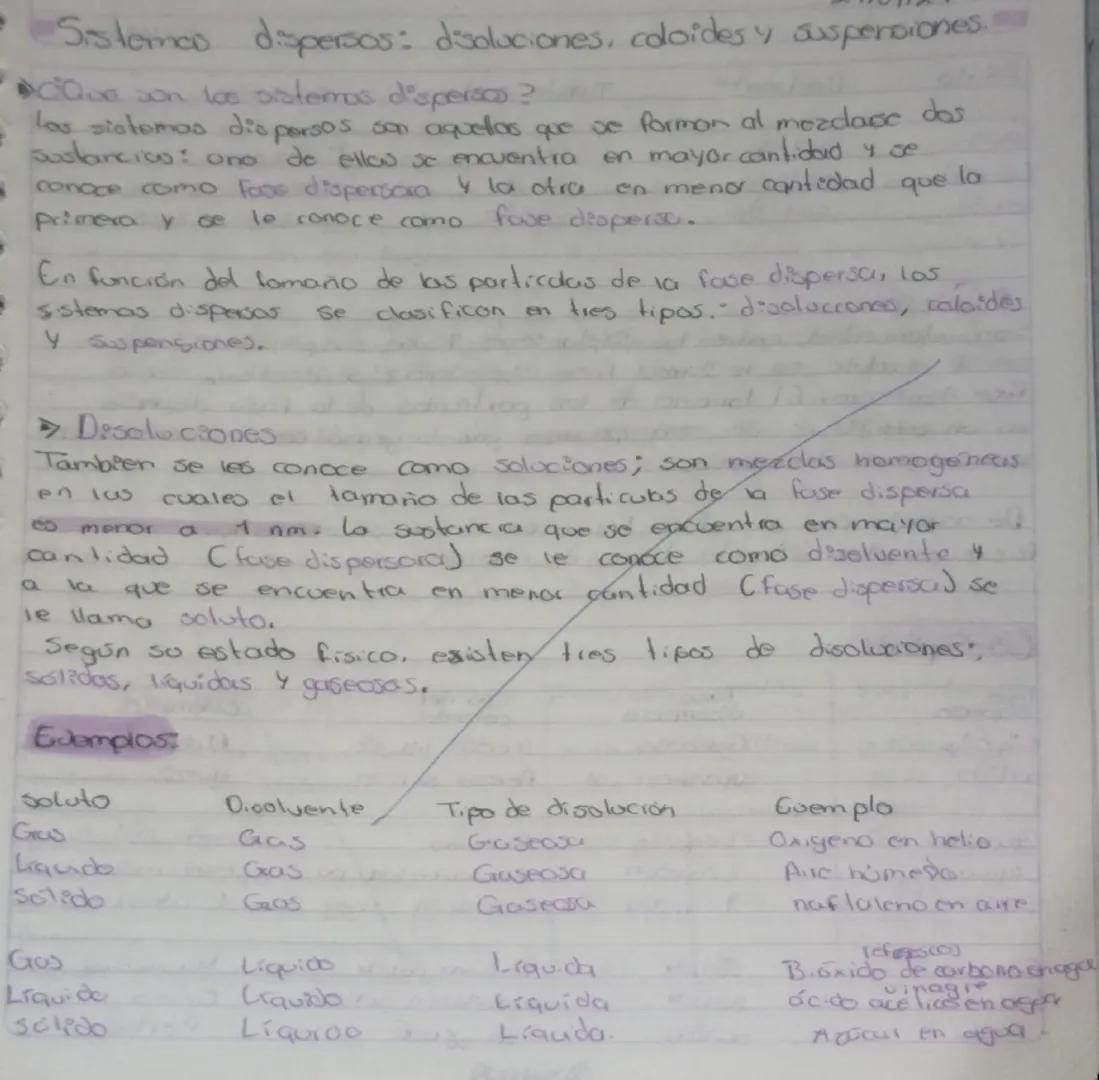 Sistemas dispersos: disoluciones, coloides y suspensiones.
¿Que son los sistemas dispersos?
Los sistemas dispersos son aquellos que se forman al mezclase dos
sustancias: una de ellas se encuentra en mayor cantidad y se
conoce como Fase dispersora y la otra en menor cantidad que la
primera y se le conoce como fase dispersa.
En función del tamaño de las particulas de la fase dispersa, los
sistemas dispersos se clasifican en tres tipos.- disoluciones, coloides
y suspensiones.
Disoluciones
Tambien se les conoce como soluciones; son mezclas homogéneas
en las cuales el tamaño de las particulas de la fase dispersa
es menor a 1 nm. La sustancia que se encuentra en mayor
cantidad (fase dispersora) se le conoce como disolvente y
a la que se encuentra en menor cantidad (fase dispersa) se
le llama soluto.
Según su estado físico, existen tres tipos de disoluciones:
sólidas, líquidas y gaseosas.
Ejemplos:
Soluto Disolvente Tipo de disolución Ejemplo
Gas Gas Gaseosa Oxigeno en helio
Liquido Gas Gaseosa Aire húmedo
Solido Gas Gaseosa naftaleno en aire
(refresco)
Gas Liquido Líquida Bióxido de carbono en agua
vinagre
Líquido Liquido Líquida ácido acético en agua
Sólido Líquido Líquida. Azúcar en agua